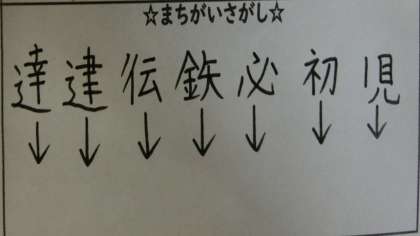 ☆まちがいさがし☆
達建伝鉄必初児
↓↓↓↓↓↓↓